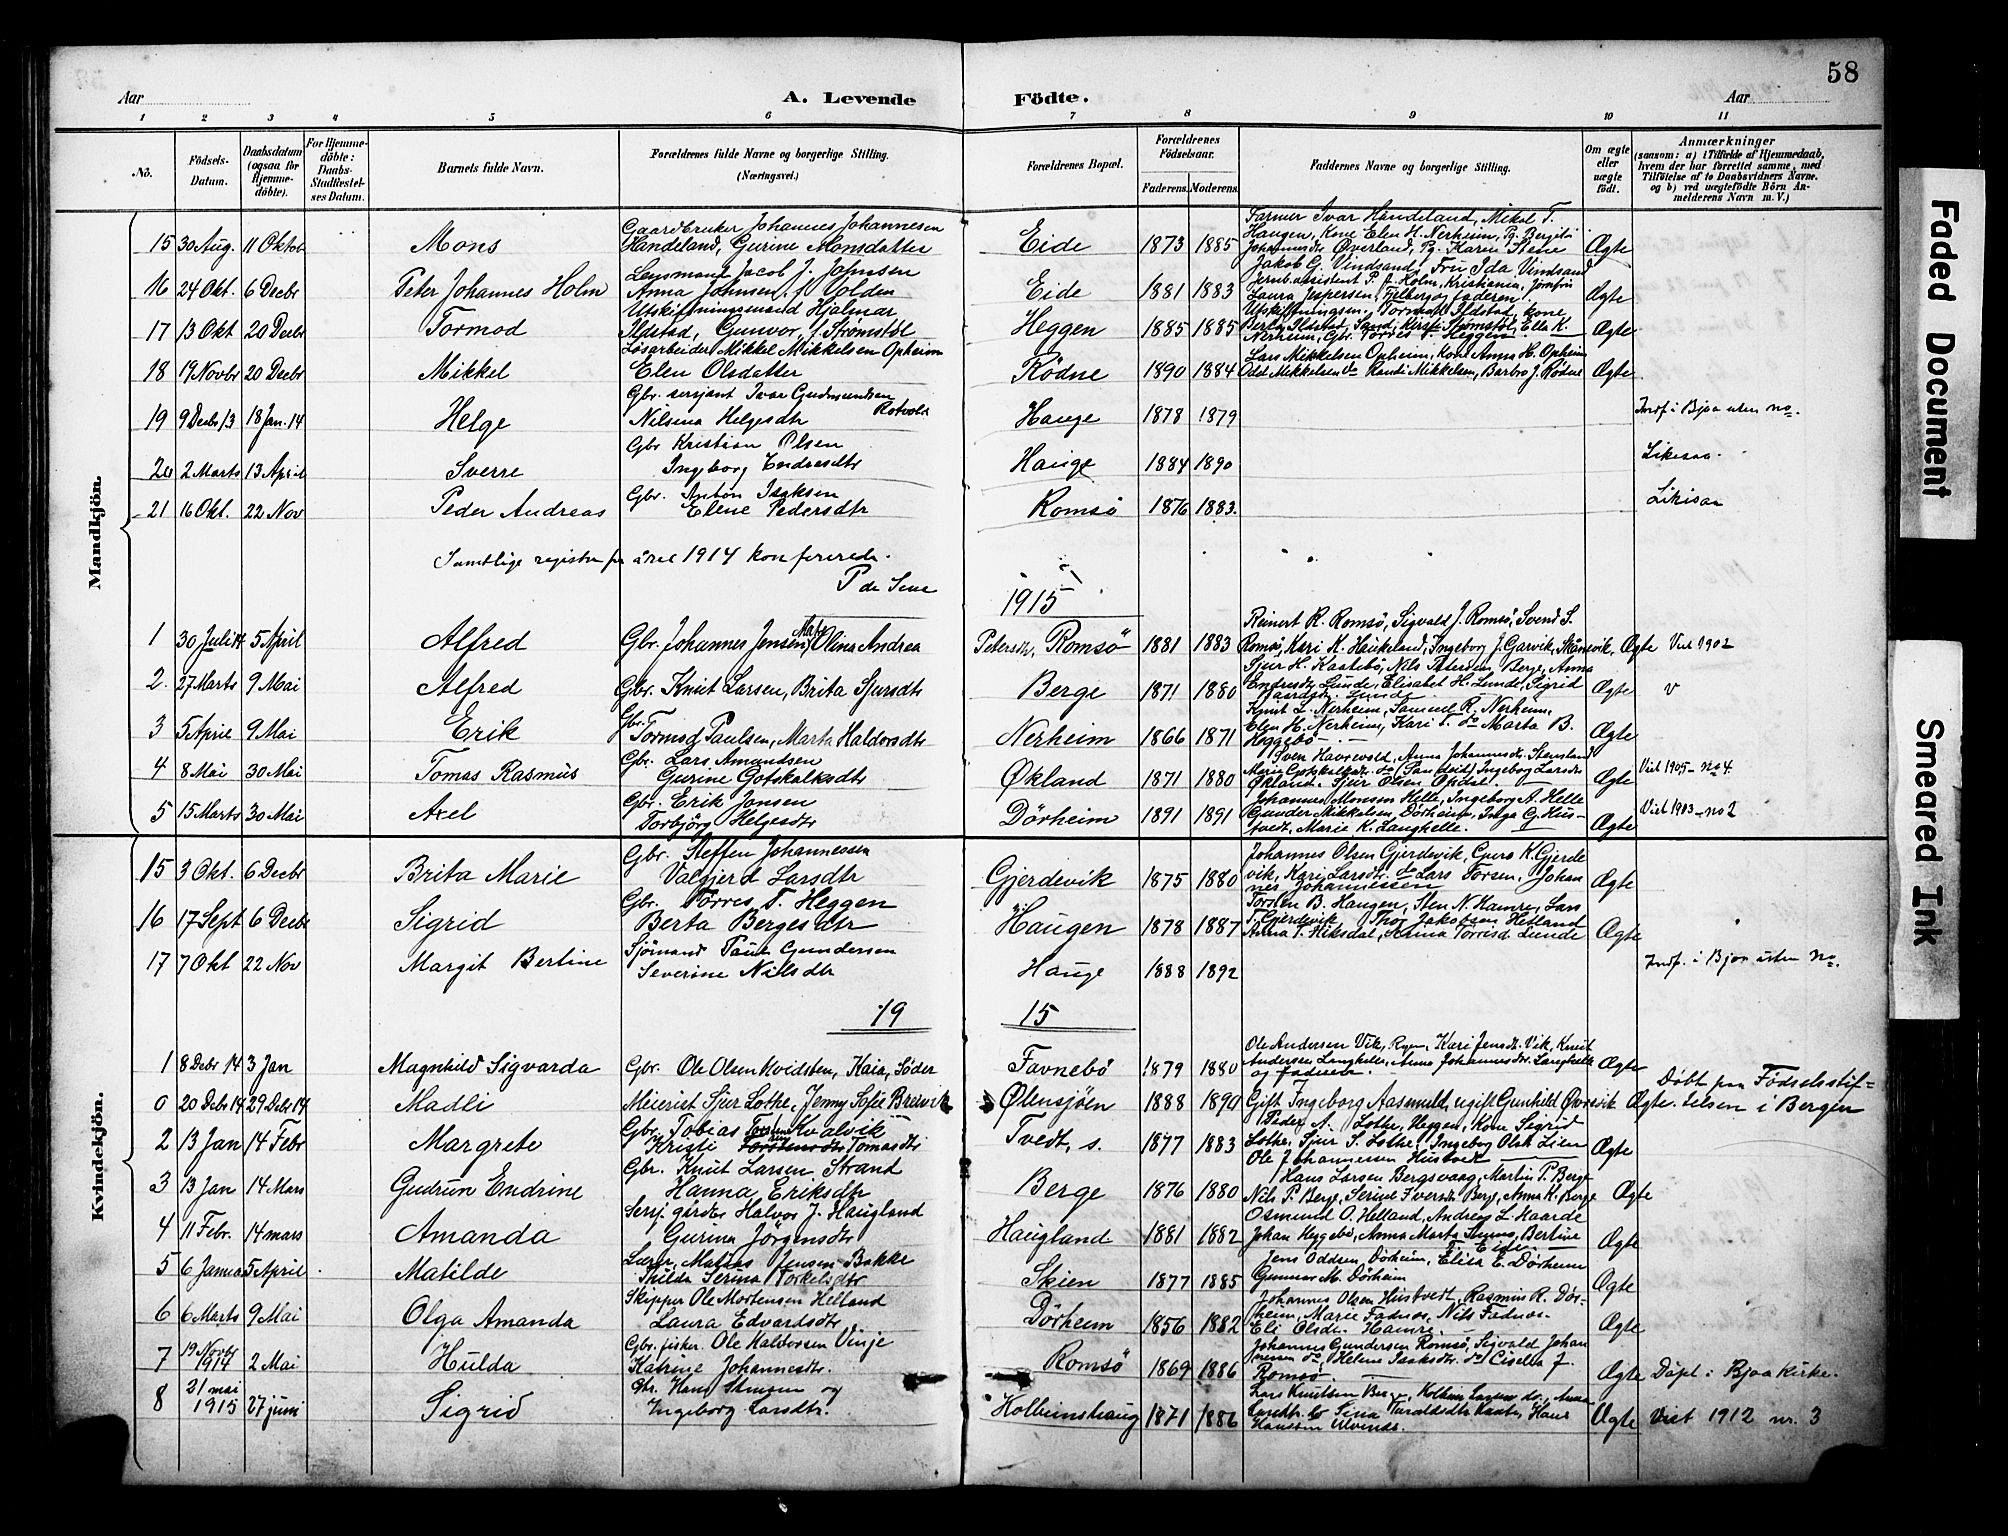 58
Aar
A. Levende
Födte.
Aar
1 2 3 4 5 6 7 8 9 10 11
No.
Födsels-Datum.
Daabsdatum (ogsaa för Hjemme-döbte).
For Hjemme-döbte: Daabs-Stadfæstel-ses Datum.
Barnets fulde Navn.
Forældrenes fulde Navne og borgerlige Stilling. (Næringsvei.)
Forældrenes Bopæl.
Forældrenes Födselsaar.
Faderens. Moderens.
Faddernes Navne og borgerlig Stilling.
Om ægte eller uægte födt.
Anmærkninger
(saasom: a) i Tilfælde af Hjemmedaab, hvem der har forrettet samme, med Tilföielse af to Daabsvidners Navne. og b) ved uægtefödte Börn An-melderens Navn m. V.)
Mandkjön.
15 30 Aug. 11 Oktob Mons Gaardbruker Johannes Johannesen Handeland, Gurine Monsdatter Eide 1873 1885 Farmer Ivar Handeland, Mikal T. Haugen, Kone Elen H. Nerheim, Pg. Bergite Johannesdtr Överland, Pg. Karine Stene Ægte
16 24 Okt. 6 Decbr Peter Johannes Holm Lensmand Jacob J. Johnsen Anna Johnsen, f. Volden Eide 1881 1883 Jakob G. Vindsand, Fru Ida Vindsand Jernb.assistent P. J. Holm, Kristiania, Laura Jespersen, Fjelberg og faderen. Ægte
17 13 Okt 20 Decbr Tormod Utskiftningsmand Hjalmar Ildstad, Gunvor, f. Strømstøl Heggen 1885 1885 Utskiftningsm. Tormod Ildstad, kone Berta Ildstad, Sand, Kirsti Strømstøl, Ella K. Nerheim, Gbr. Torres T. Heggen Ægte
18 19 Novbr 20 Decbr Mikkel Løsarbeider Mikkel Mikkelsen Opheim Elen Olsdatter Rödne 1890 1884 Lars Mikkelsen Opheim, Kone Anna H. Opheim Odd Mikkelsen do Randi Mikkelsen, Barbro J. Rödne Ægte
19 9 Decbr 13 18 Jan. 14 Helge Gbr. sersjant Ivar Gudmundsen Rotvold Nilsina Helgesdtr Hauge 1878 1879 Indf. i Bjoa uten no.
20 2 Marts 13 April Sverre Gbr Kristian Olsen Ingeborg Endresdtr Hauge 1884 1890 Likesaa.
21 16 Okt. 22 Nov Peder Andreas Gbr. Anton Isaksen Elene Pedersdtr Romsö 1876 1883. Likesaa
Samtlige registre for året 1914 konfererede.
P de Seue
1915
1 30 Juli 14 5 April Alfred Gbr. Johannes Jensen, Olina Andrea Petersdtr. Romsö 1881 1883 Reinert R. Romsö, Sigvald J. Romsö, Svend S. Romsö, Kari K. Haukeland, Ingeborg J. Garvik, Skånevik. Ægte Viet 1902
2. 27 Marts 9 Mai Alfred Gbr. Knut Larsen, Brita Sjursdtr Berge 1871 1880 Sjur H. Kaatebö, Nils Petersen Berge, Anna Endresdtr Lunde, Elisabet H. Lunde, Sigrid Lunde Ægte v
3 5 April 9 Mai Erik Gbr. Tormod Paulsen, Marta Haldorsdtr Nerheim 1866 1871 Knut L. Nerheim, Samuel R. Nerheim, Elen H. Nerheim, Kari T. do Marta B. Heggebö Ægte
4 8 Mai 30 Mai Tomas Rasmus Gbr. Lars Amundsen Gurine Gotskalksdtr Økland 1871 1880 Sven Havsevold, Anna Johannesdtr. Ingeborg Larsdtr Økland. Sjur Olsen Opdal. Ægte Viet 1905 - no 4.
5 15 Marts 30 Mai Axel Gbr. Erik Jansen Torbjörg Helgesdtr Dörheim 1891 1891 Johannes Monsen Helle, Ingeborg A. Helle Gunder Mikkelsen, Dörheim, Inga G. Hustvedt, Marie K. Langhelle. Ægte Viet 1913 - no 2
Kvindekjön.
15 3 Okt. 6 Decbr Brita Marie Gbr. Steffen Johannessen Valgjerd Larsdtr Gjerdevik 1875 1880 Johannes Olsen Gjerdevik, Guro K. Gjerdevik, Kari Larsdtr. do Lars Torsen, Johannes Johannessen Ægte
16 17 Sept 6 Decbr Sigrid Gbr. Torres T. Heggen Berta Bergesdtr Haugen 1878 1887 Torsten B. Haugen, Sten N. Hamre, Lars T. Gjerdevik, Thor Jakobsen Hetland Anna T. Miksdal, Torrisd Lunde Ægte
17 7 Okt 22 Nov Margit Bertine Sjömand Paul Gundersen Severine Nilsdtr Hauge 1888 1892 Indf. i Bjoa uten no.
19 15
1 8 Debr 14 3 Jan Magnhild Sigvarda Gbr. Ole Olsen Kvidsten, Kaia, Söder Favnebö 1879 1880 Ole Andersen Vik, Kari Jensdtr. Vik, Knut Andersen Langhelle, Anna Johannesdtr. Langhelle og faderen Ægte
0 20 Debr 14 29 Debr 14 Madli Meierist Sjur Lothe, Jenny Sofie Bredvik Ölensjöen 1888 1890 Gift Ingeborg Aasmuld, ugift Gunhild Övrevik Peder N. Lothe, Heggen, Kone Sigrid Ægte. Döbt paa Födselsstiftelsen i Bergen
2 13 Jan 14 Febr Margrete Gbr. Tobias Kvalvik Kristi Tomasdtr Tvedt, s. 1877 1883 Lothe, Sjur S. Lothe, Ingeborg Olsd. Lien Ole Johannessen Hustvedt Ægte
3 13 Jan 14 Mars Gudrun Endrine Gbr. Knut Larsen Strand Hanna Eriksdtr Berge 1876 1880 Hans Larsen Bergsvaag, Martin P. Berge Nils P. Berge, Serine Iversdtr Berge, Anna K. Berge Ægte
4 11 Febr. 14 mars Amanda Sersj. gårdbr Halvor J. Haugland Gurina Jörgensdtr Haugland 1881 1882 Osmund O. Helland, Andreas L. Kaarde Johan Heggebö, Anna Marta Bertine T. Eide Ægte
5 6 Janua 5 April Matilde Lærer Matias Jensen Bakke Thilda Serina Torkelsdtr Skien 1877 1885 Jens Oddsen Dörheim, Elisa E. Dörheim Gunnar M. Dörheim Ægte
6 6 Marts 9 Mai Olga Amanda Skipper Ole Mortensen Helland Laura Edvardsdtr Dörheim 1856 1882 Johannes Olsen Hustvedt, Rasmus R. Dörheim, Marie Fadnes, Nils Fadnes. Eli Olsdtr. Hamre. Ægte
7 19 Novbr 1914 2 Mai Hulda Gbr. fisker. Ole Haldorsen Vinje Katrine Johannesdtr. Romsö 1869 1886 Johannes Gundersen Romsö, Sigvald Johannesen do, Helene Isaksdtr. do, Cisella J. Romsö. Ægte Döpt i Bjoa kirke.
8 21 mai 1915 27 juni Sigrid Gbr. Hans Simonsen og Ingeborg Larsdtr. Holbeinshaug 1871 1886 Lars Knutsen Berge, Kolbein Larsen do., Anna Larsdtr. do Sina Taraldsdtr Kaate, Hans Hansson Ulvenes. Ægte Viet 1912 nr. 3
Faded Document
Smeared Ink